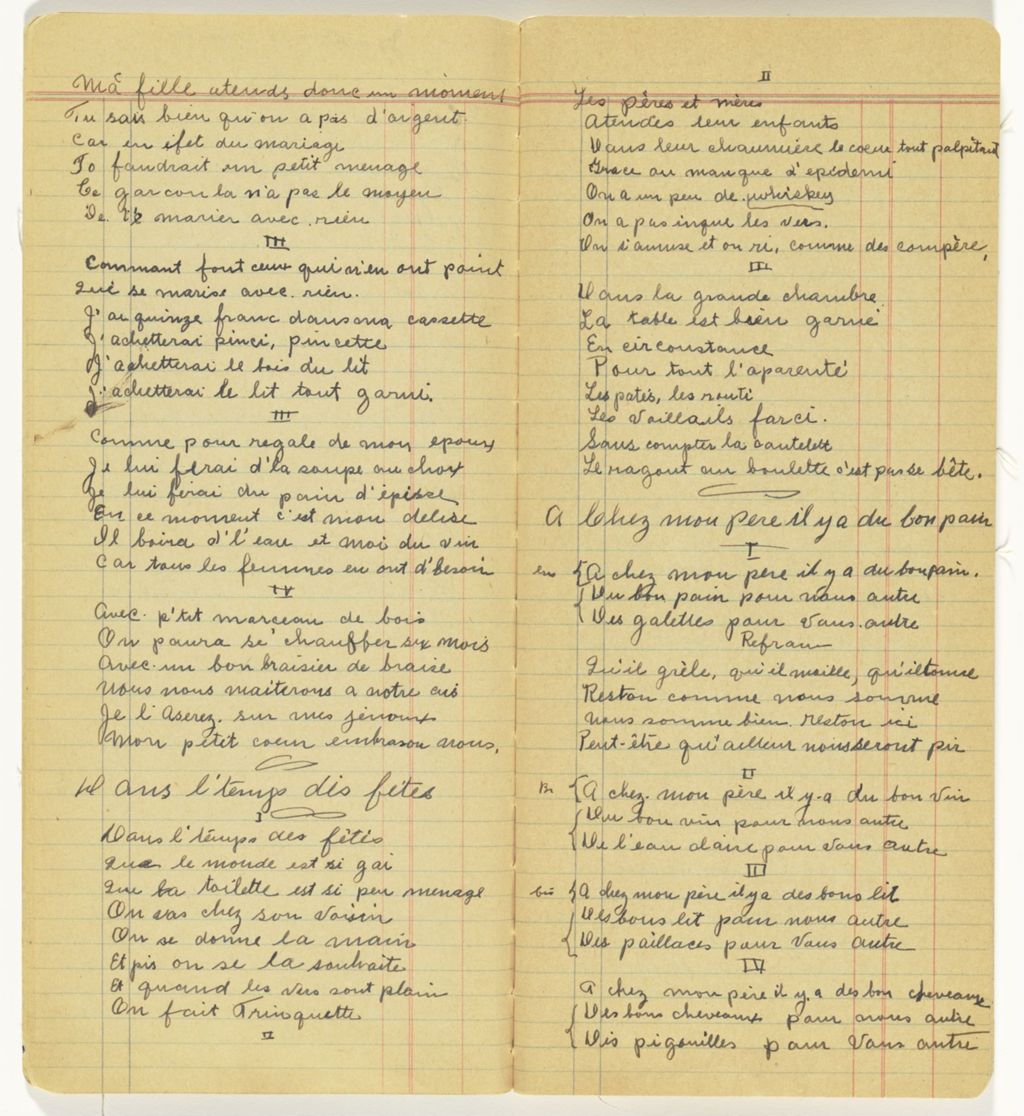 Ma fille atends donc un moment
Tu sais bien qu'on a pas d'argent.
Car en ifet du mariage
To faudrait un petit menage
Ce garcon la n'a pas le moyen
De te marier avec rien
III
Commant font ceux qui n'en ont point
Qui se marise avec rien.
J'ai quinze franc dans ma cassette
J'achetterai pinci, pincette
J'achetterai le bois du lit
J'achetterai le lit tout garni.
III
Comme pour regale de mon epoux
Je lui ferai d'la soupe au choux
Je lui ferai du pain d'épisse
En ce moment c'est mon delise
Il boira d'l'eau et moi du vin
Car tous les femmes en ont d'besoin
IV
Avec p'tit marceau de bois
On poura se chauffer six mois
Avec un bon braisier de braise
Nous nous maiterons a notre ais
Je l'Aserez sur mes jenoux
Mon petit coeur embrason nous.
Dans l'temps dis fêtes
I
Dans l'temps des fêtes
Que le monde est si gai
Que la toilette est si peu menage
On vas chez son voisin
On se donne la main
Et pis on se la souhaite
Et quand les vers sont plain
On fait Trinquette
II
II
Les pères et mères
Atendes leur enfants
Dans leur chaumière le coeur tout palpitant
Grace au manque d'epidemi
On a un peu de whiskey
On a pas inque les vers.
On s'amuse et on ri, comme des compère,
III
Dans la grande chambre
La table est bien garni
En circonstance
Pour tout l'aparenté
Les patés, les routi
Les Vaillails farci.
Sans compter la cautelett
Le ragout au boulette c'est pas se bête.
A Chez mon pere il y a du bon pain
I
{A chez mon père il y a du bon pain.
Du bon pain pour nous autre
Des galettes pour Vous autre
Refrain
Qu'il grèle, qu'il maille, qu'il tonne
Reston comme nous somme
Nous somme bien reston ici
Peut-être qu'ailleur nous seront pir
II
{A chez mon père il y-a du bon Vin
Du bon vin pour nous autre
De l'eau claire pour Vous autre
III
bis {A chez mon père il y a des bons lit
Des bons lit pour nous autre
Des paillaces pour Vous autre
IV
A chez mon père il y a des bon cheveaux
Des bons cheveaux pour nous autre
Dis pigouilles pour Vous autre